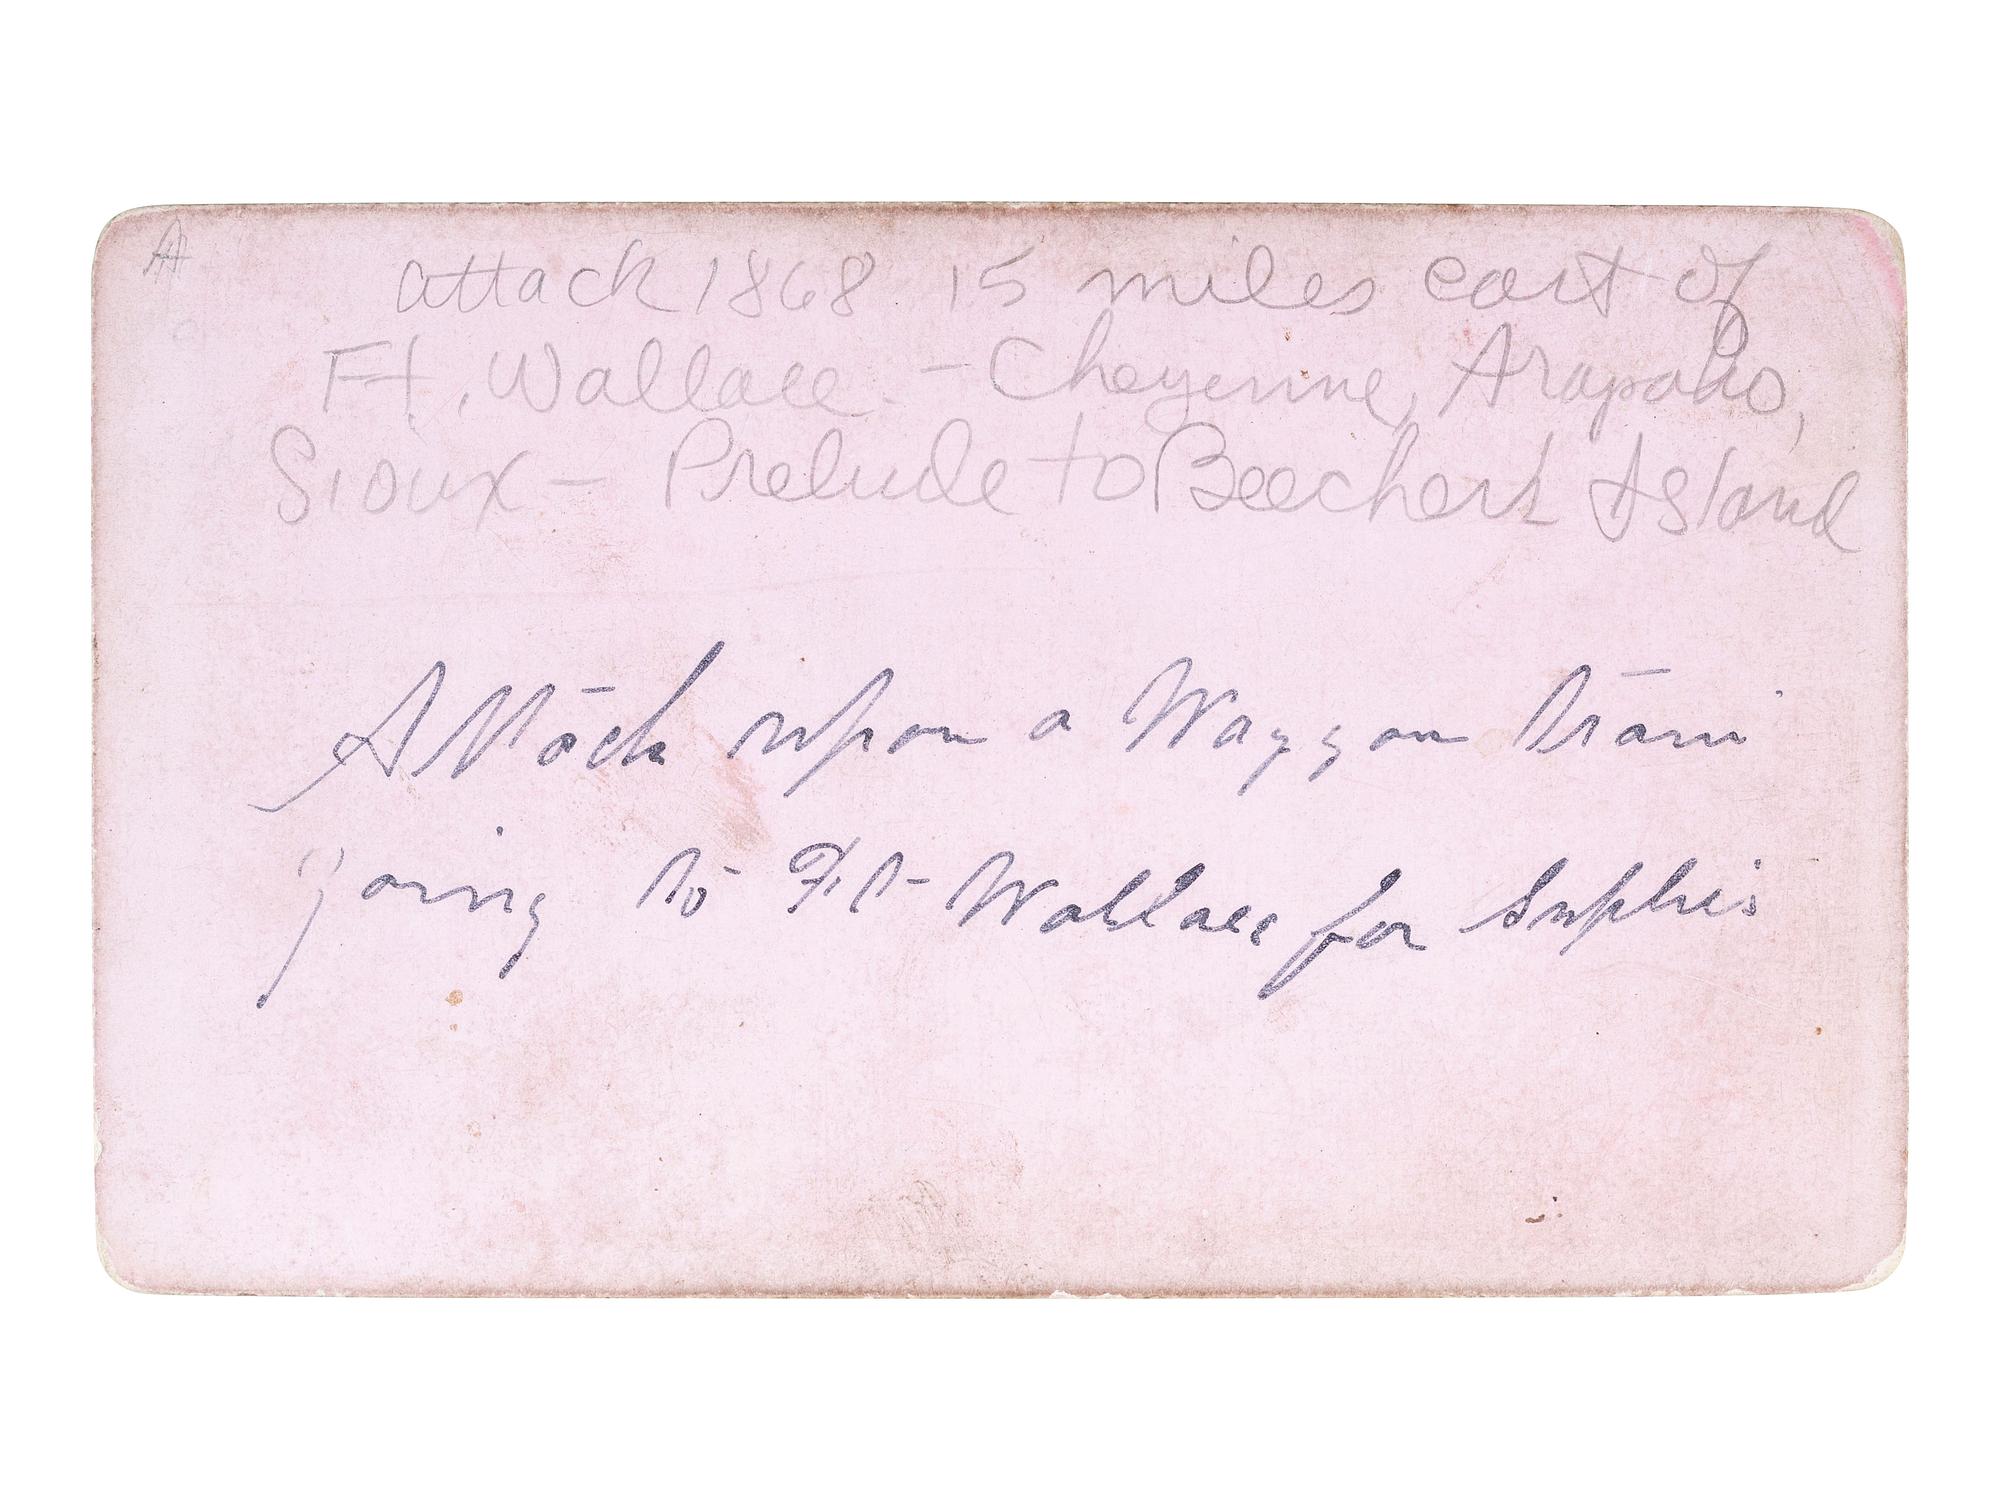 A
attack 1868 15 miles east of
Ft. Wallace. - Cheyenne, Arapaho,
Sioux - Prelude to Beechers Island
Attack upon a Waggon Train
going to Ft Wallace for Suplies